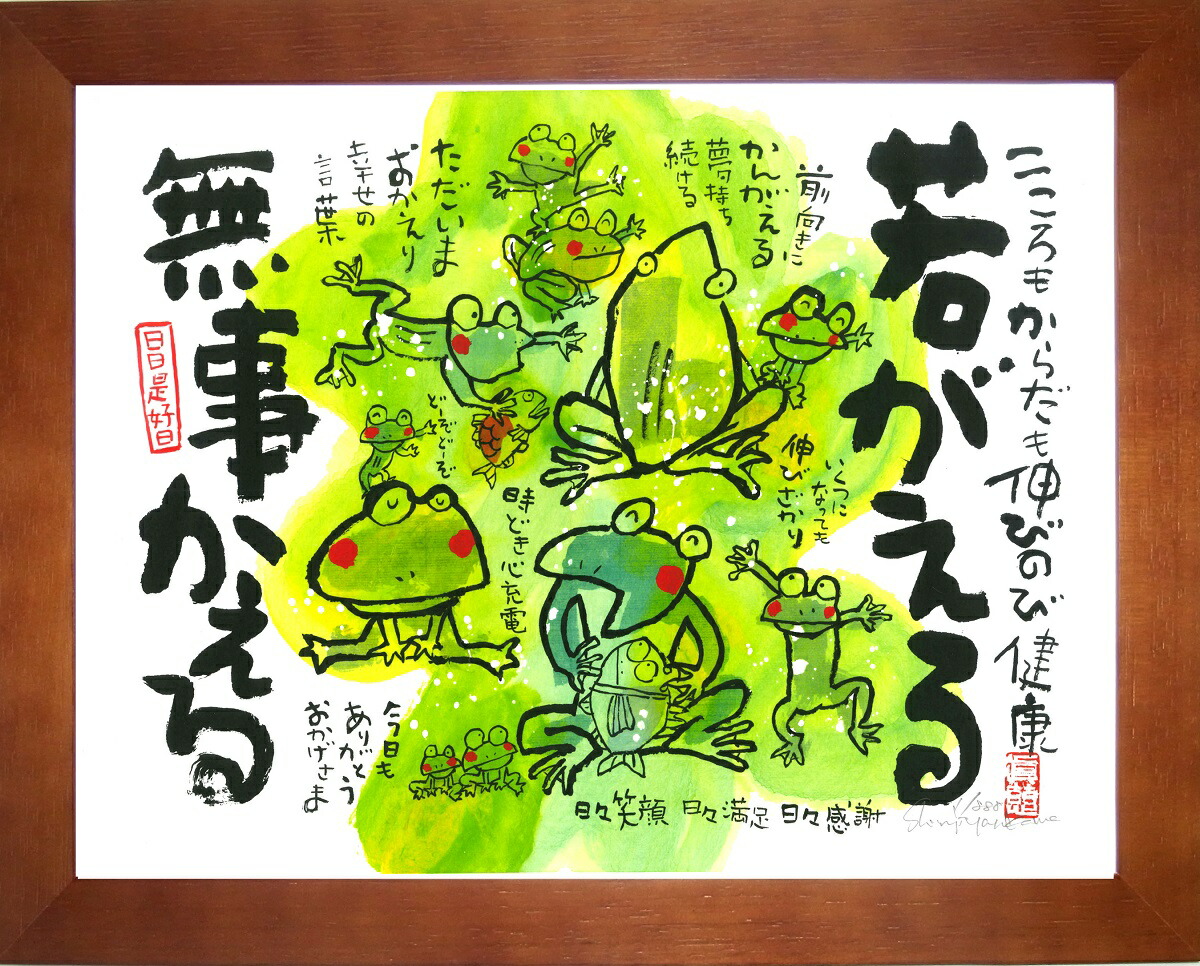 こころもからだも伸びのび健康
若がえる
前向きに
かんがえる
夢持ち
続ける
ただいま
おかえり
幸せの
言葉
無事かえる
日日是好日
いくつに
なっても
伸びざかり
どーぞどーぞ
時どき心充電
今日も
ありがとう
おかげさま
日々笑顔 日々満足 日々感謝